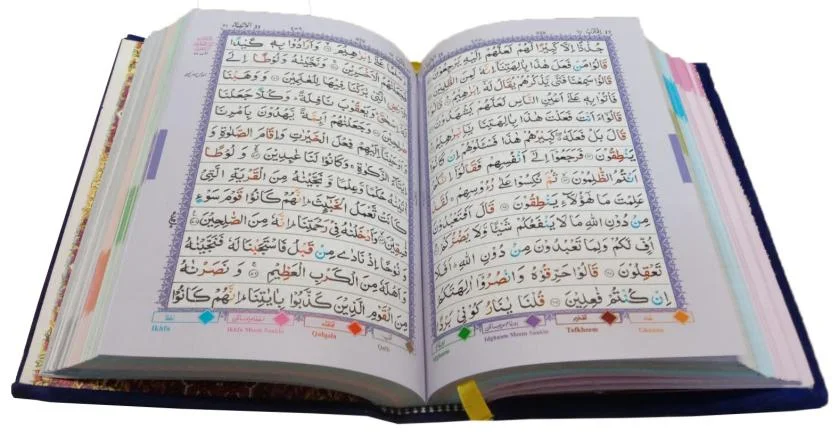 جُذٰذًا اِلَّا كَبِيْرًا لَّهُمْ لَعَلَّهُمْ اِلَيْهِ يَرْجِعُوْنَ
قَالُوْا مَنْ فَعَلَ هٰذَا بِاٰلِهَتِنَاۤ اِنَّهٗ لَمِنَ الظّٰلِمِيْنَ
قَالُوْا سَمِعْنَا فَتًى يَّذْكُرُهُمْ يُقَالُ لَهٗۤ اِبْرٰهِيْمُ
قَالُوْا فَاْتُوْا بِهٖ عَلٰۤى اَعْيُنِ النَّاسِ لَعَلَّهُمْ يَشْهَدُوْنَ
قَالُوْۤا ءَاَنْتَ فَعَلْتَ هٰذَا بِاٰلِهَتِنَا يٰۤاِبْرٰهِيْمُ
قَالَ بَلْ فَعَلَهٗ كَبِيْرُهُمْ هٰذَا فَسْـَٔلُوْهُمْ اِنْ كَانُوْا
يَنْطِقُوْنَ فَرَجَعُوْۤا اِلٰۤى اَنْفُسِهِمْ فَقَالُوْۤا
اَنْتُمُ الظّٰلِمُوْنَ ثُمَّ نُكِسُوْا عَلٰى رُءُوْسِهِمْ لَقَدْ
عَلِمْتَ مَا هٰۤؤُلَآءِ يَنْطِقُوْنَ قَالَ اَفَتَعْبُدُوْنَ
مِنْ دُوْنِ اللّٰهِ مَا لَا يَنْفَعُكُمْ شَيْـًٔا وَّلَا يَضُرُّكُمْ
اُفٍّ لَّكُمْ وَلِمَا تَعْبُدُوْنَ مِنْ دُوْنِ اللّٰهِ اَفَلَا
تَعْقِلُوْنَ قَالُوْا حَرِّقُوْهُ وَانْصُرُوْۤا اٰلِهَتَكُمْ
اِنْ كُنْتُمْ فٰعِلِيْنَ قُلْنَا يٰنَارُ كُوْنِيْ بَرْدًا
Idghaam Meem Saakin
Tafkheem
Ghunna
عَلٰۤى اِبْرٰهِيْمَ وَاَرَادُوْا بِهٖ كَيْدًا
الْاَخْسَرِيْنَ وَنَجَّيْنٰهُ وَلُوْطًا اِلَى
الَّتِيْ بٰرَكْنَا فِيْهَا لِلْعٰلَمِيْنَ وَوَهَبْنَا
وَيَعْقُوْبَ نَافِلَةً وَكُلًّا جَعَلْنَا
وَجَعَلْنٰهُمْ اَئِمَّةً يَّهْدُوْنَ بِاَمْرِنَا
وَاَوْحَيْنَاۤ اِلَيْهِمْ فِعْلَ الْخَيْرٰتِ وَاِقَامَ الصَّلٰوةِ وَ
اِيْتَآءَ الزَّكٰوةِ وَكَانُوْا لَنَا عٰبِدِيْنَ وَلُوْطًا
اٰتَيْنٰهُ حُكْمًا وَّعِلْمًا وَّنَجَّيْنٰهُ مِنَ الْقَرْيَةِ الَّتِيْ
كَانَتْ تَّعْمَلُ الْخَبٰٓئِثَ اِنَّهُمْ كَانُوْا قَوْمَ سَوْءٍ
فٰسِقِيْنَ وَاَدْخَلْنٰهُ فِيْ رَحْمَتِنَا اِنَّهٗ مِنَ الصّٰلِحِيْنَ
وَنُوْحًا اِذْ نَادٰى مِنْ قَبْلُ فَاسْتَجَبْنَا لَهٗ فَنَجَّيْنٰهُ
وَاَهْلَهٗ مِنَ الْكَرْبِ الْعَظِيْمِ وَنَصَرْنٰهُ
مِنَ الْقَوْمِ الَّذِيْنَ كَذَّبُوْا بِاٰيٰتِنَا اِنَّهُمْ كَانُوْا
Ikhfa
Ikhfa Meem Saakin
Qalqala
Qalb